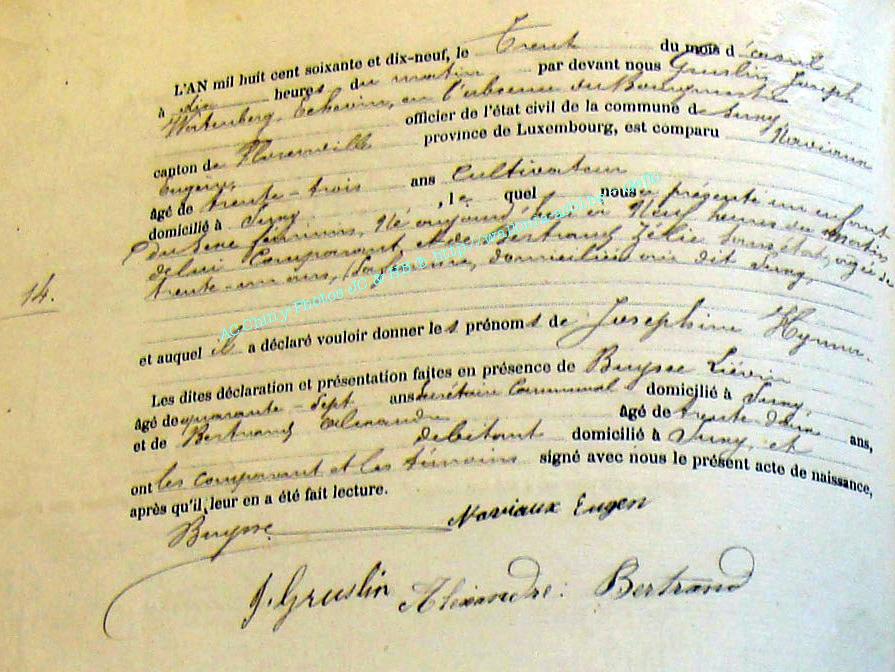 L'AN mil huit cent soixante et dix-neuf, le Trent du mois d'aout
à dix heures du matin par devant nous Gruslin, Joseph
Wertenberg, Echevin, en l'absence du Bourgmestre
officier de l'état civil de la commune de Suny
canton de province de Luxembourg, est comparu Naviaux
Eugene,
âgé de trente-trois ans Cultivateur
domicilié à Suny, lequel nous a présenté un enfant
du sexe féminin, Né aujourd'hui en Neuf heures du matin
de lui Comparant et de Bertrand Zélie, sans état, agée de
trente-un ans, Son Epouse, domiciliée au dit Suny,
14.
et auquel il a déclaré vouloir donner les prénoms de Josephine
Les dites déclaration et présentation faites en présence de Buysse Liévin
âgé de quarante-sept ans Secrétaire Communal domicilié à Suny,
et de Bertrand Alexandre âgé de trente-deux ans,
débitant domicilié à Suny, et
ont les comparant et les témoins signé avec nous le présent acte de naissance,
après qu'il leur en a été fait lecture.
Buysse Naviaux Eugen
J. Gruslin Alexandre: Bertrand